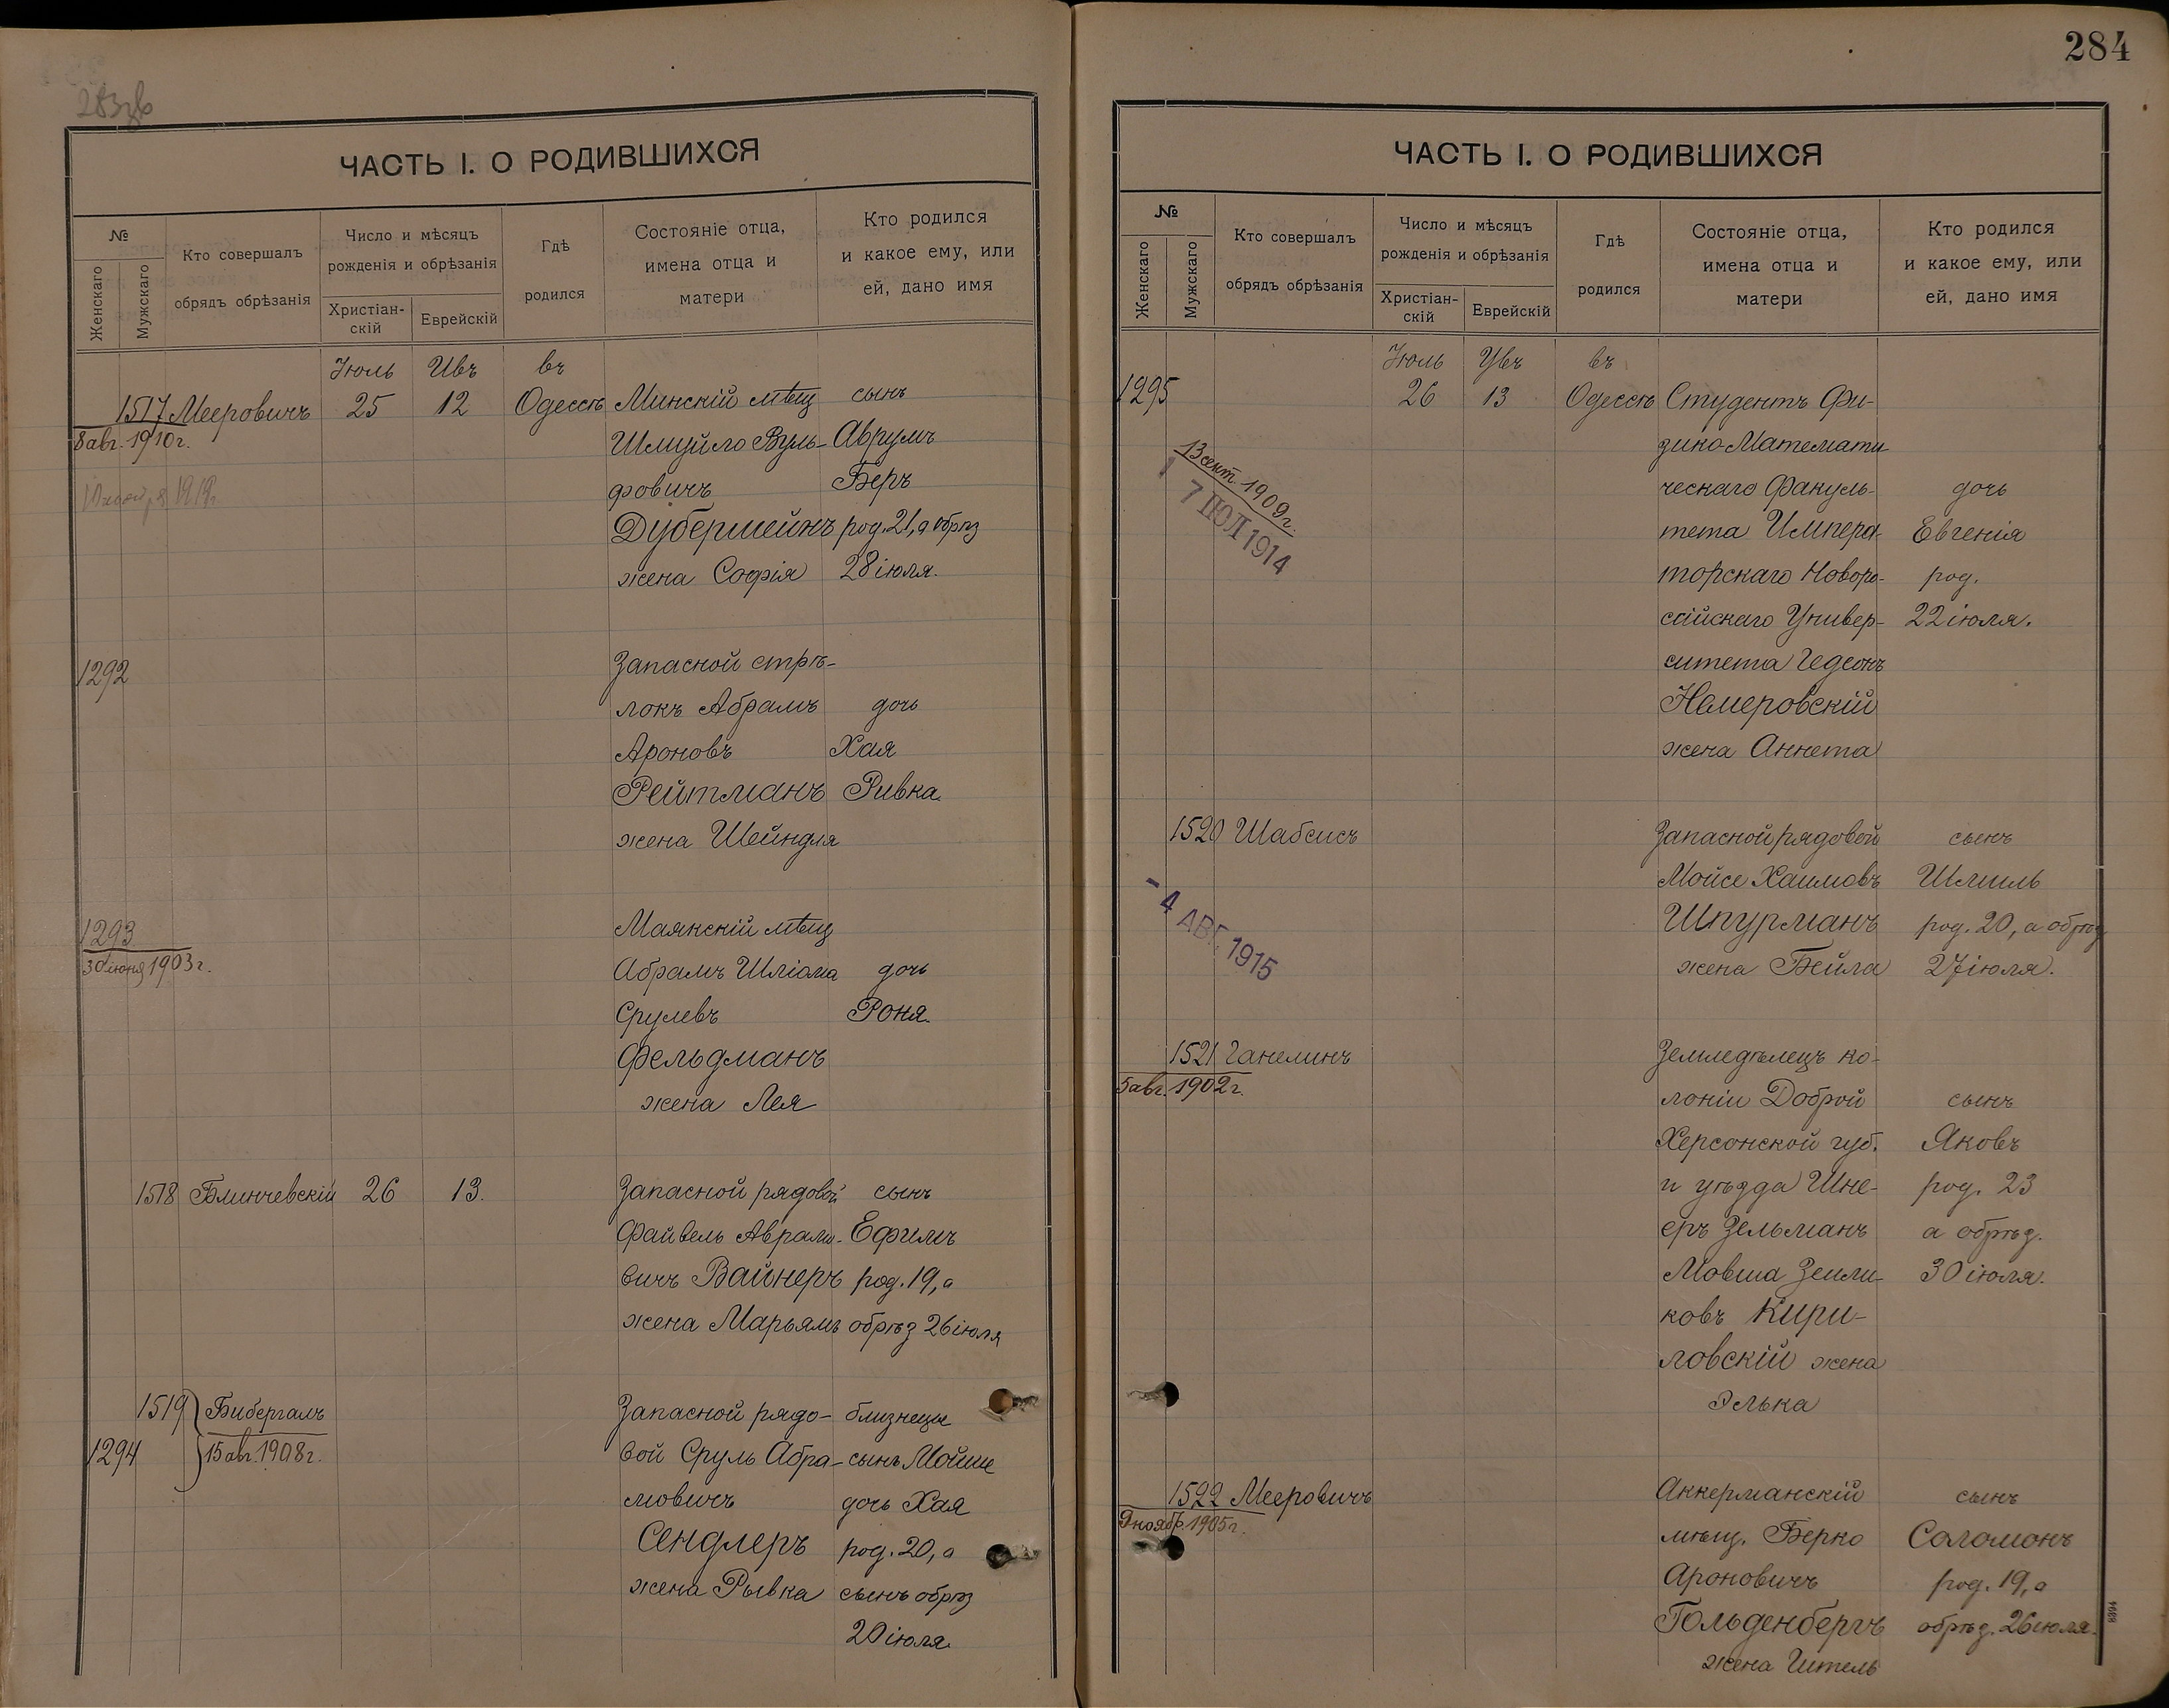 284
ЧАСТЬ I. О РОДИВШИХСЯ
№
Женскаго
Мужскаго
Кто совершалъ
обрядъ обрѣзанія
Число и мѣсяцъ
рожденія и обрѣзанія
Христіан-
скій
Еврейскій
Гдѣ
родился
Состояніе отца,
имена отца и
матери
Кто родился
и какое ему, или
ей, дано имя
Іюль Увъ въ
1517 Мееровичъ 25 12 Одессѣ Минскій мѣщ сынъ
8 авг. 1910 г. Шмуйло Вуль- Аврумъ
фовичъ Беръ
Дубермейнъ род. 21, а обрѣз
жена Софія 28 іюля.
1292 Запасной стрѣ-
локъ Абрамъ дочь
Ароновъ Хая
Рейтманъ Ривка
жена Шейндля
1293 Маякскій мѣщ
30 іюня 1903 г. Абрамъ Шліома дочь
Срулевъ Роня
Фельдманъ
жена Лея
1518 Блинчевскій 26 13. Запасной рядовой сынъ
Файвель Аврамо- Ефимъ
вичъ Вайнеръ род. 19, а
жена Марьямъ обрѣз 26 іюля
1519 Бибергалъ Запасной рядо- близнецы
1294 15 авг. 1908 г. вой Сруль Абра- сынъ Мойше
мовичъ дочь Хая
Сендлеръ род. 20, а
жена Рывка сынъ обрѣз
20 іюля
ЧАСТЬ I. О РОДИВШИХСЯ
№
Женскаго
Мужскаго
Кто совершалъ
обрядъ обрѣзанія
Число и мѣсяцъ
рожденія и обрѣзанія
Христіан-
скій
Еврейскій
Гдѣ
родился
Состояніе отца,
имена отца и
матери
Кто родился
и какое ему, или
ей, дано имя
Іюль Увъ въ
1295 26 13 Одессѣ Студентъ Фи-
зико-Математи
13 сент. 1909 г. ческаго Факуль- дочь
7 ІЮЛ 1914 тета Импера- Евгенія
торскаго Новоро- род.
сійскаго Универ- 22 іюля.
ситета Гедеонъ
Немеровскій
жена Аннета
1520 Шабсисъ Запасной рядовой сынъ
- 4 АВГ. 1915 Мойсе Хаимовъ Шмиль
Шпурманъ род. 20, а обрѣз
жена Бейла 27 іюля.
1521 Ганелинъ Земледѣлецъ ко-
5 авг. 1902 г. лоніи Доброй сынъ
Херсонской губ. Яковъ
и уѣзда Шне- род. 23
еръ Зельманъ а обрѣз.
Мовша Зели- 30 іюля.
ковъ Кири-
ловскій жена
Элька
1522 Мееровичъ Аккерманскій сынъ
9 ноябр. 1905 г. мѣщ. Берко Саломонъ
Ароновичъ род. 19, а
Гольденбергъ обрѣз. 26 іюля.
жена Гитель